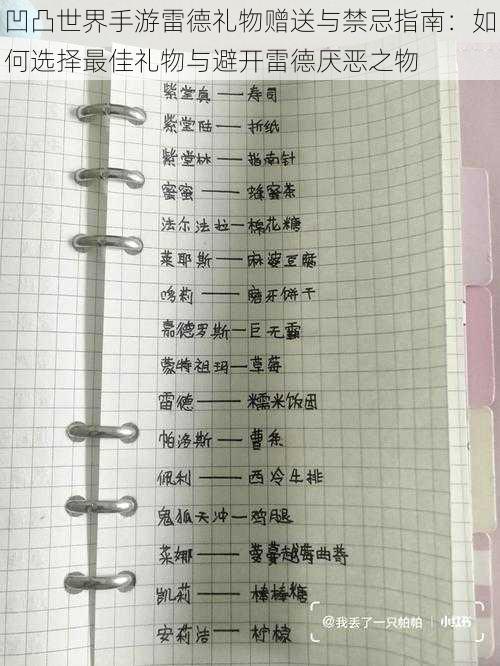 凹凸世界手游雷德礼物赠送与禁忌指南：如
何选择最佳礼物与避开雷德厌恶之物
紫堂真——寿司
紫堂陆——折纸
紫堂林——指南针
蜜蜜——蜂蜜茶
法尔法拉—棉花糖
莱耶斯—麻婆豆腐
鸣莉——磨牙饼干
嘉德罗斯—巨无霸
蒙特祖玛—草莓
雷德——糯米饭团
帕洛斯——薯条
佩利——西冷牛排
鬼狐天冲—鸡腿
莱娜——蔓越莓曲奇
凯莉——棒棒糖
安莉洁——柠檬
@我丢了一只帕帕 | 小红书